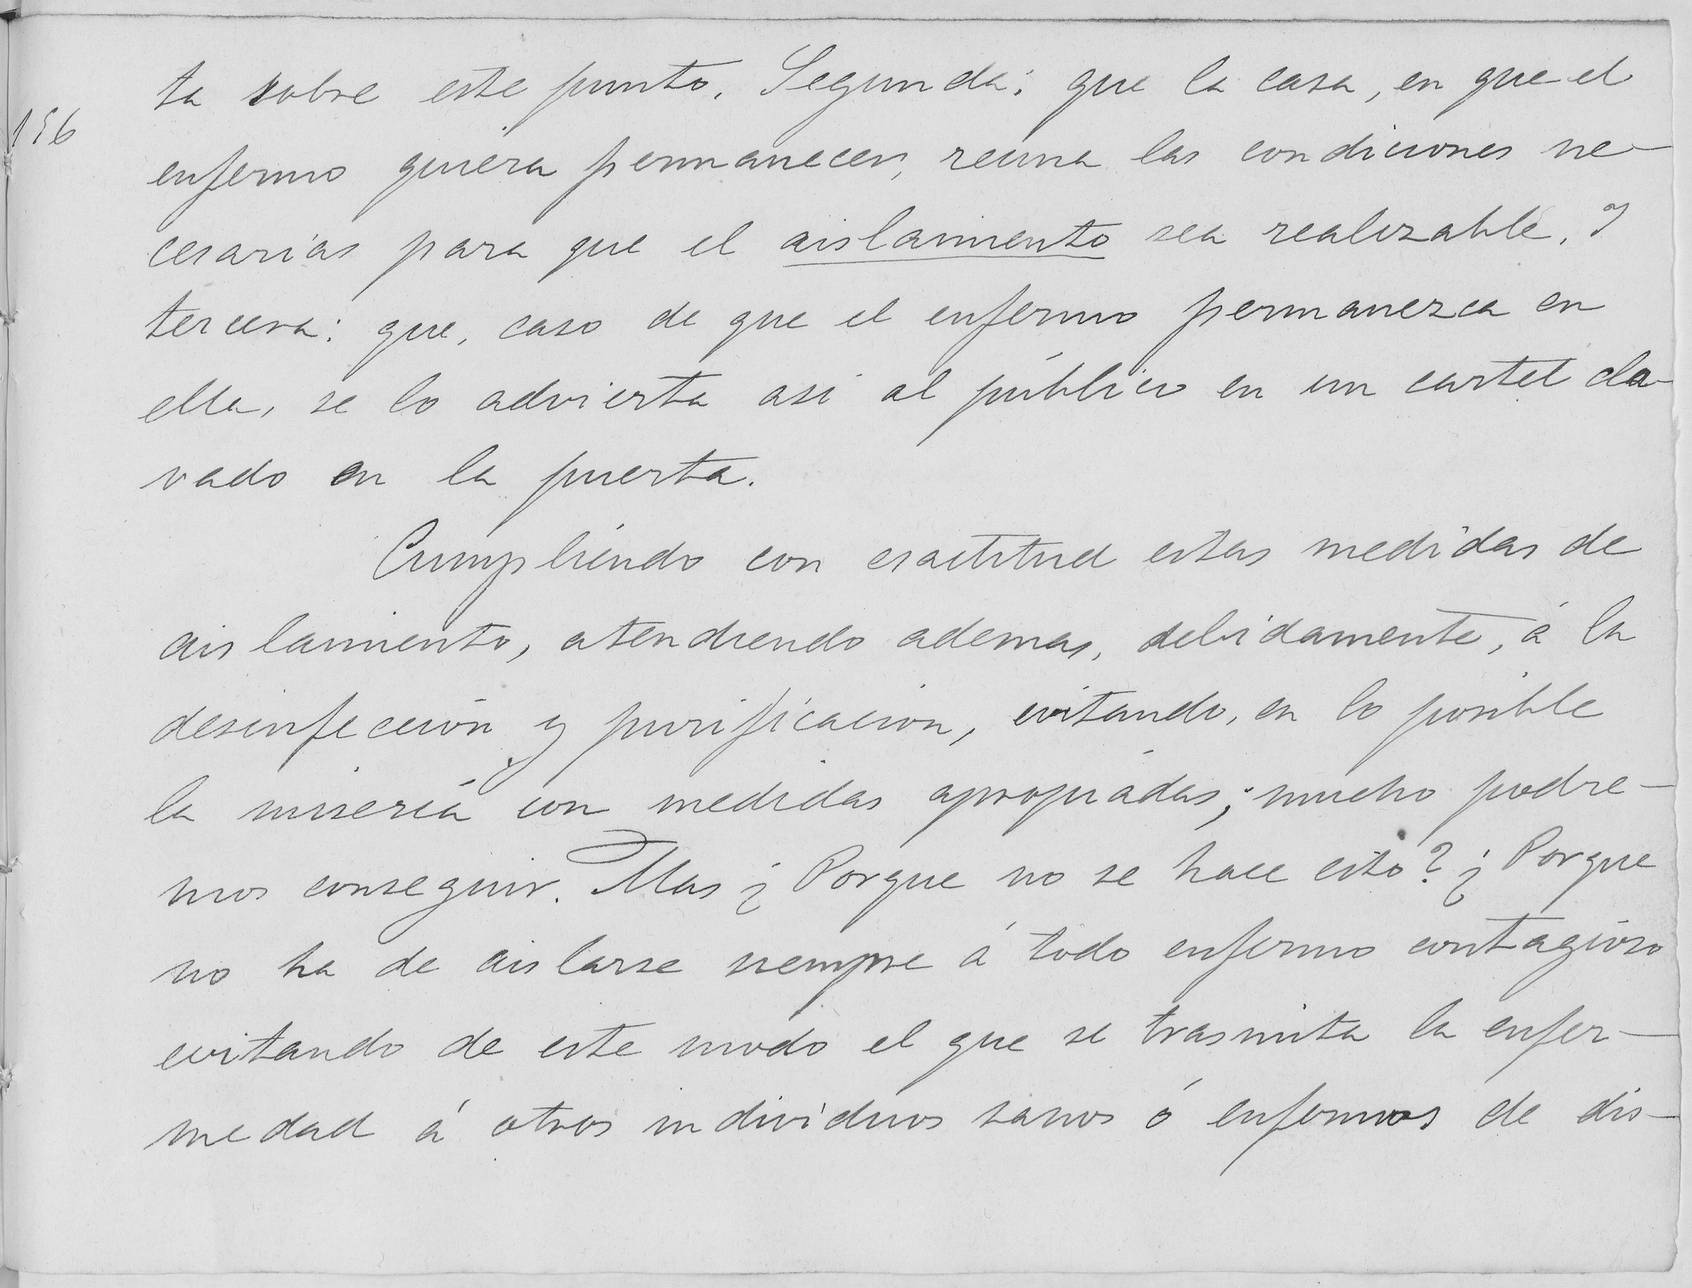 ta sobre este punto. Segunda: que la casa, en que el
156
enfermo quiera permanecer, reuna las condiciones ne-
cesarias para que el aislamiento sea realizable. Y
tercera: que, caso de que el enfermo permanezca en
ella, se lo advierta asi al público en un cartel cla-
vado en la puerta.
Cumpliendo con exactitud estas medidas de
aislamiento, atendiendo ademas, debidamente, á la
desinfección y purificacion, evitando, en lo posible
la miseria con medidas apropiadas; mucho podre-
mos conseguir. Mas ¿Porque no se hace esto? ¿Porque
no ha de aislarse siempre á todo enfermo contagioso
evitando de este modo el que se trasmita la enfer-
medad á otros individuos sanos ó enfermos de dis-